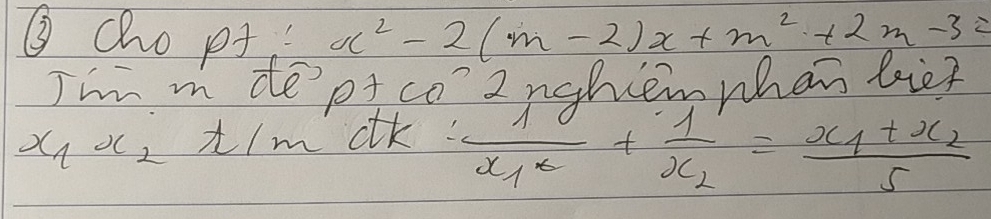 ③ Cho pt : x² - 2(m - 2)x + m² + 2m - 3 =
Tìm m để pt có 2 nghiệm phân biệt
x₁ x₂ t/m đk : 1/x₁ + 1/x₂ = (x₁ + x₂)/5